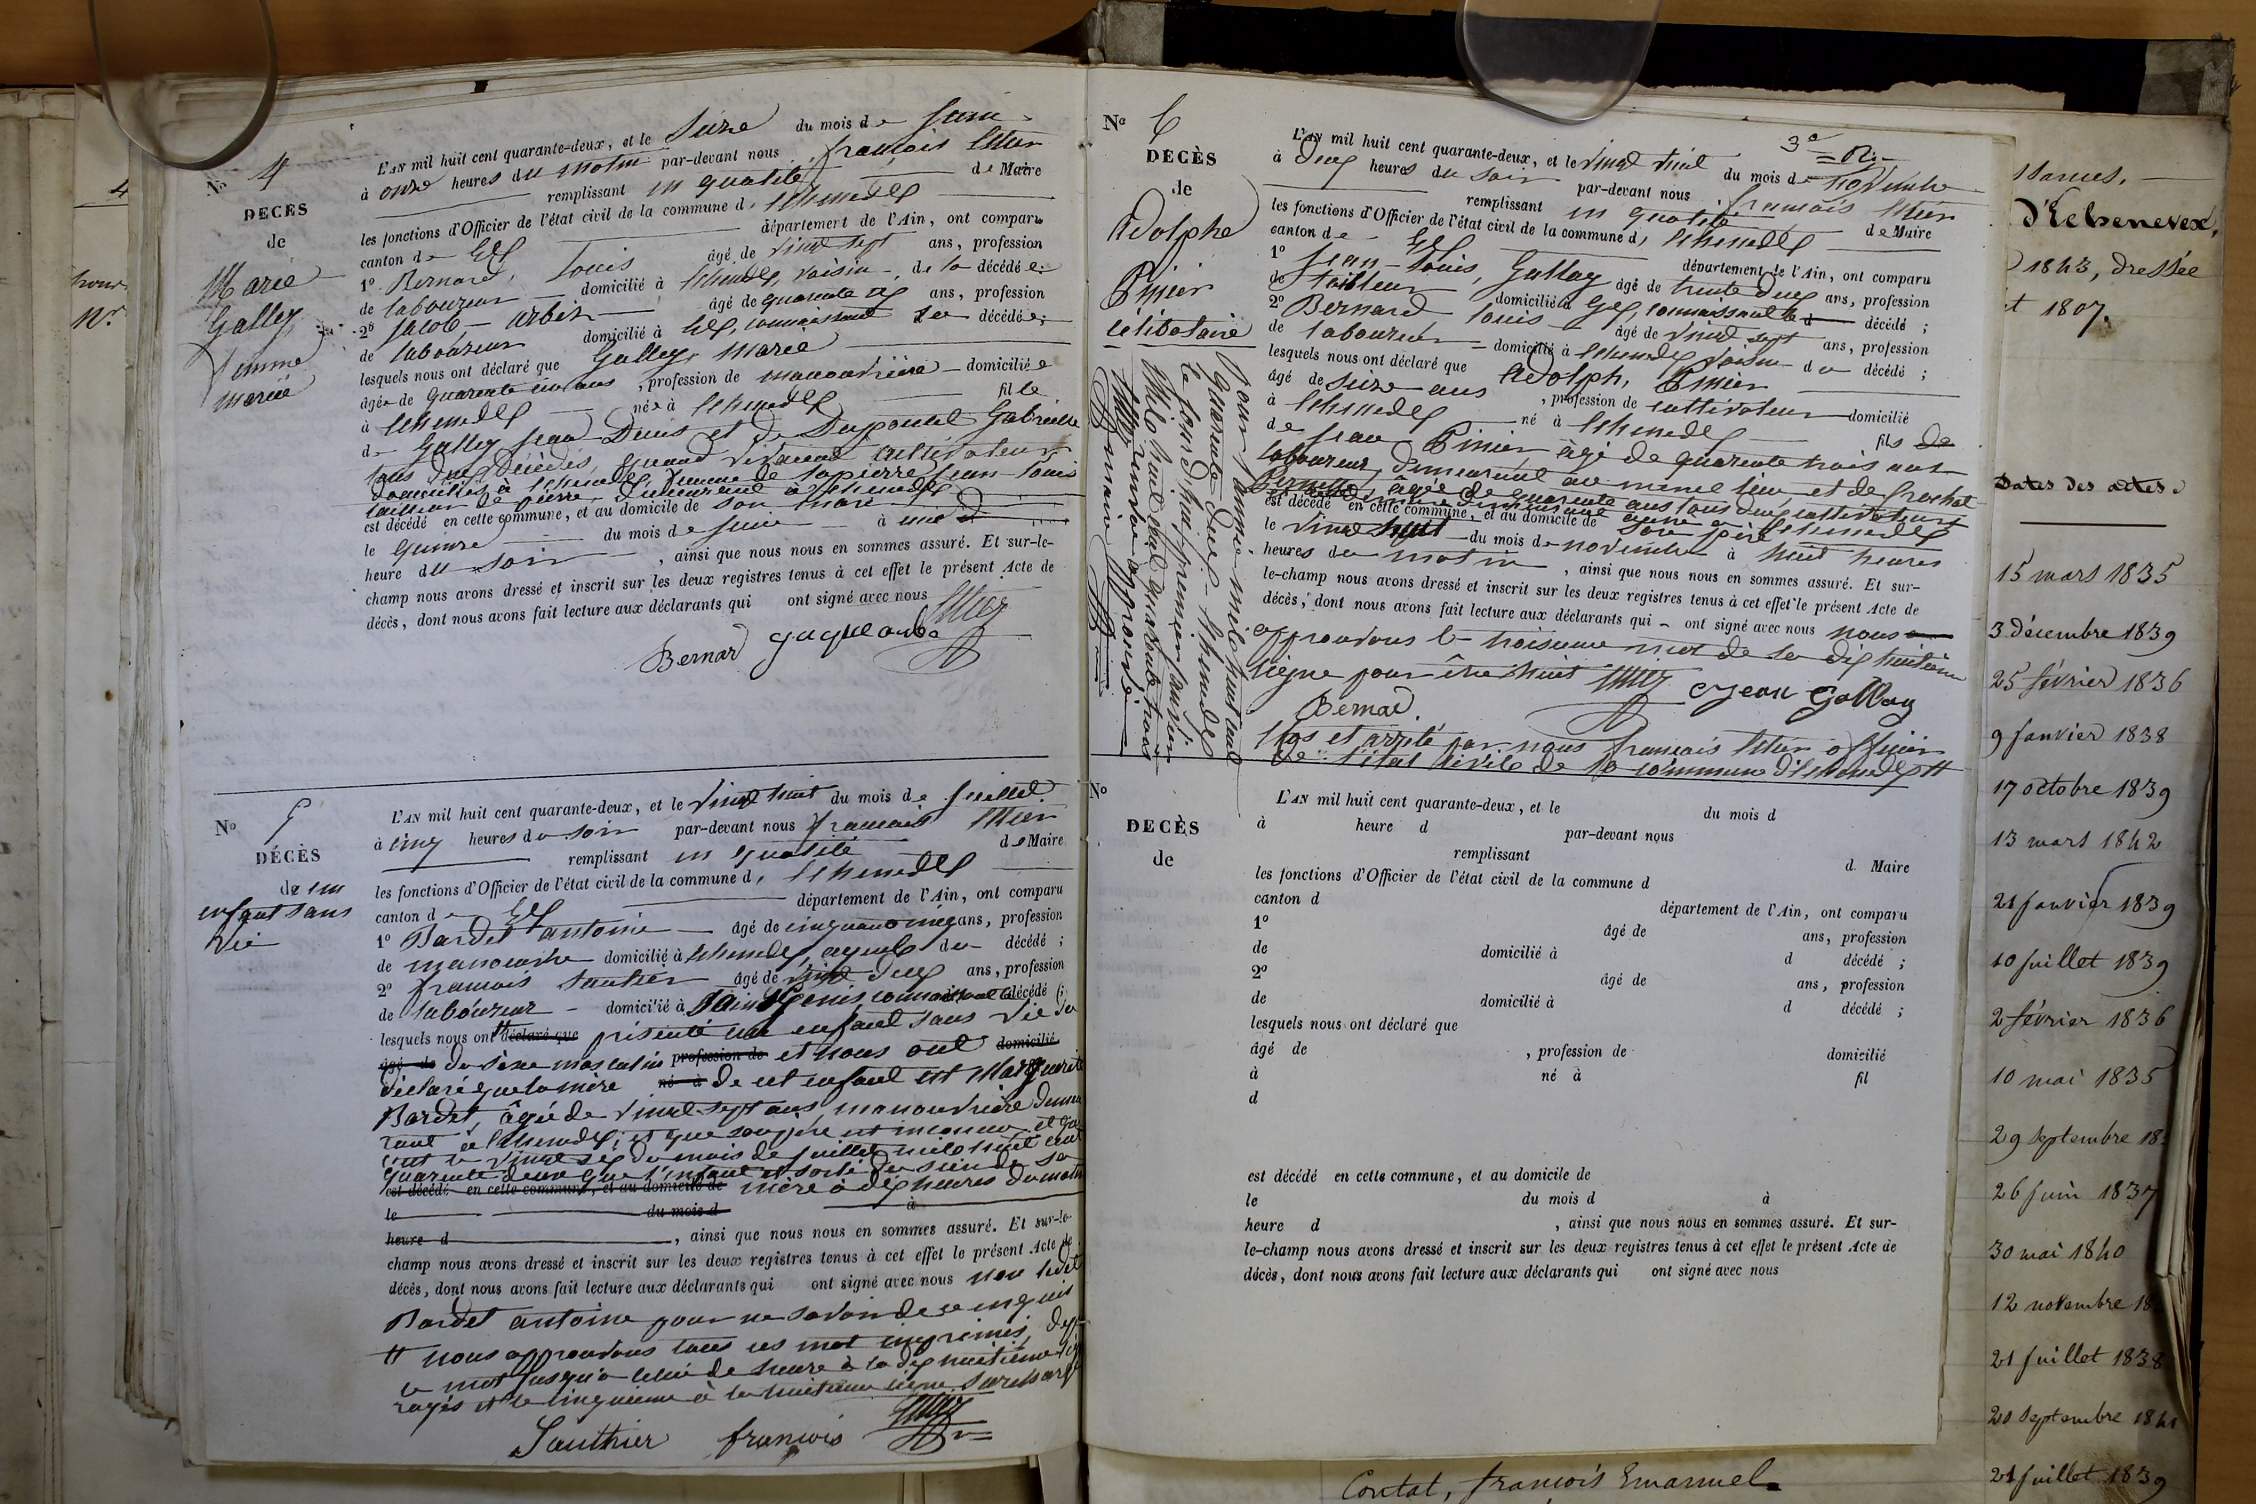 No 4
DECÈS
de
Marie
Galley
femme
mariée
L'AN mil huit cent quarante-deux, et le seize du mois de juin
à onze heures du matin par-devant nous françois
remplissant en qualité de Maire
les fonctions d'Officier de l'état civil de la commune d'
canton de Gex département de l'Ain, ont comparu
1o Bernard, Louis âgé de vingt sept ans, profession
de laboureur domicilié à voisin de la décédée;
2o Jacob âgé de quarante ans, profession
de laboureur domicilié à Gex, connaissant la décédée;
lesquels nous ont déclaré que Galley, Marie
âgée de quarante un ans, profession de manouvrière domiciliée
à née à fille
de Galley Jean Denis et de Dupontet Gabrielle
tous deux décédés, quand vivaient cultivateurs
domiciliés à femme de Lapierre Jean-Louis
tailleur de pierre demeurant à
est décédé en cette commune, et au domicile de son mari
le quinze du mois de juin à une
heure du soir, ainsi que nous nous en sommes assuré. Et sur-le-
champ nous avons dressé et inscrit sur les deux registres tenus à cet effet le présent Acte de
décès, dont nous avons fait lecture aux déclarants qui ont signé avec nous
Bernard
No 5
DÉCÈS
de un
enfant sans
vie
L'AN mil huit cent quarante-deux, et le vingt huit du mois de juillet
à cinq heures du soir par-devant nous françois
remplissant en qualité de Maire
les fonctions d'Officier de l'état civil de la commune d'
canton de Gex département de l'Ain, ont comparu
1o Bardet antoine âgé de cinquante ans, profession
de manoeuvre domicilié à ayeul du décédé;
2o francois Sautier âgé de vingt deux ans, profession
de laboureur domicilié à Saint Genis connaissant le décédé;
lesquels nous ont déclaré que présenté un enfant sans vie
âgé de du sexe masculin profession de et nous ont domicilié
déclaré que la mère né à de cet enfant est Marguerite
Bardet, âgée de vingt sept ans, manouvrière demeu
rant à et que son père est inconnu et que
c'est le vingt six du mois de juillet mil huit cent
quarante deux que l'enfant est sorti du sein de sa
est décédé en cette commune, et au domicile de mère à dix heures du matin
le du mois d à
heure d, ainsi que nous nous en sommes assuré. Et sur-le-
champ nous avons dressé et inscrit sur les deux registres tenus à cet effet le présent Acte de
décès, dont nous avons fait lecture aux déclarants qui ont signé avec nous non ledit
Bardet antoine pour ne savoir de ce enquis
nous approuvons tous ces mot imprimés
le mot jusqu'à celui de heure à la dix huitième
rayés et le cinquième à la huitième ligne surchargé
Sauthier francois
No 6
DECÈS
de
Adolphe
célibataire
3e
L'AN mil huit cent quarante-deux, et le vingt huit du mois de novembre
à deux heures du soir par-devant nous francois
remplissant en qualité de Maire
les fonctions d'Officier de l'état civil de la commune d'
canton de Gex département de l'Ain, ont comparu
1o Jean-Louis, Gallay âgé de trente deux ans, profession
de tailleur domicilié à Gex, connaissant le décédé;
2o Bernard Louis âgé de vingt sept ans, profession
de laboureur domicilié à voisin du décédé;
lesquels nous ont déclaré que Adolph,
âgé de seize ans, profession de cultivateur domicilié
à né à fils de
de Jean âgé de quarante trois ans
laboureur, demeurant au même lieu et de Prochet
âgée de quarante ans tous deux cultivateurs
est décédé en cette commune, et au domicile de son père
le vingt huit du mois de novembre à huit heures
heures du matin, ainsi que nous nous en sommes assuré. Et sur-
le-champ nous avons dressé et inscrit sur les deux registres tenus à cet effet le présent Acte de
décès, dont nous avons fait lecture aux déclarants qui ont signé avec nous nous
approuvons le troisieme mot de la dix huitième
ligne pour être huit
Jean Gallay
Bernard
Clos et arrêté par nous francois officier
de l'état civil de la commune d'
pour l'année mil huit cent
quarante-deux
le jourd'hui premier janvier
mil huit cent quarante trois
renvoi approuvé
No
DECÈS
de
L'AN mil huit cent quarante-deux, et le du mois d
à heure d par-devant nous
remplissant d Maire
les fonctions d'Officier de l'état civil de la commune d
canton d département de l'Ain, ont comparu
1o âgé de ans, profession
de domicilié à d décédé;
2o âgé de ans, profession
de domicilié à d décédé;
lesquels nous ont déclaré que
âgé de, profession de domicilié
à né à fil
d
est décédé en cette commune, et au domicile de
le du mois d à
heure d, ainsi que nous nous en sommes assuré. Et sur-
le-champ nous avons dressé et inscrit sur les deux registres tenus à cet effet le présent Acte de
décès, dont nous avons fait lecture aux déclarants qui ont signé avec nous
d'Echenevex,
1843, dressée
t 1807.
Dates des actes
15 mars 1835
3 décembre 1839
25 février 1836
9 janvier 1838
17 octobre 1839
13 mars 1842
21 janvier 1839
10 juillet 1839
2 février 1836
10 mai 1835
29 septembre 18
26 juin 1837
30 mai 1840
12 novembre 18
21 juillet 1838
20 septembre 1841
21 juillet 1839
Contat, françois Emanuel